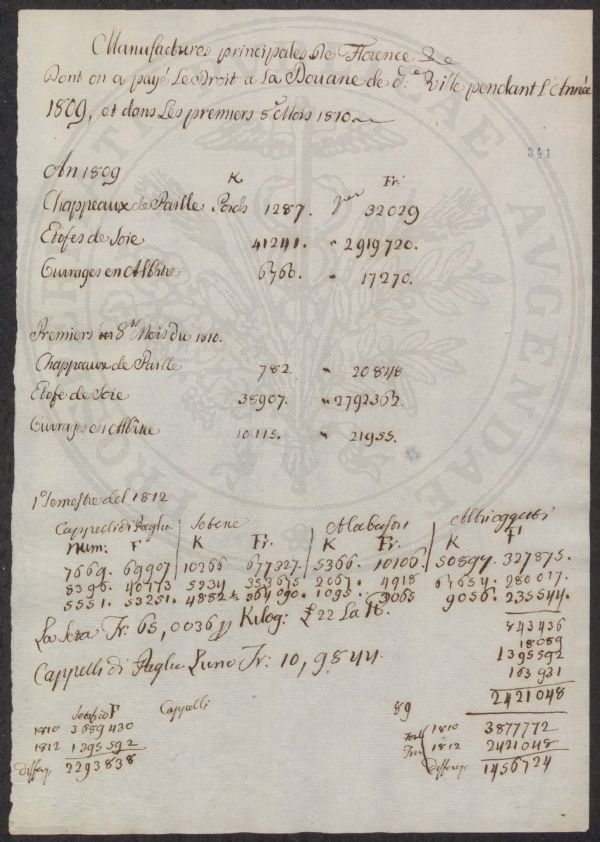 Manufactures principales de Florence &c
Dont on a payé Le Droit a La Douane de d.e Ville pendant L'Année
1809, et dans Les premiers 8 Mois 1810
341
An 1809 K Fr.
Chappeaux de Paille Poids 1287. pour 32029
Etofes de Soie 41241. " 2919720.
Ouvrages en Albâtre 6766. " 17270.
Premiers 8 Mois du 1810.
Chappeaux de Paille 782. " 20848
Etofe de Soie 38907. " 2792362.
Ouvrages en Albâtre 10115. " 21955.
1o Semestre del 1812
Cappelli di Paglia Seterie Alabastri Altri oggetti
Num: Fr K Fr. K Fr. K Fr
7669. 69907 10266 677327. 5366. 10106. 50897. 327875.
8396. 40773 5234 353675 2067. 4918 67654. 280017.
5551. 53251. 4882 364590 1095. 3065 9056. 235544.
La Seta Fr: 65,0036 p Kilog: £22 La lb.
843436
18089
1395592
163931
2421048
Cappelli di Paglia L'uno Fr: 10,9844.
Seterie Fr Cappelli 89
1810 3689430
1812 1395592
Differ 2293838
1810 3877772
1812 2421048
Differ 1456724
PROSPERITATI PUBLICAE AUGENDAE